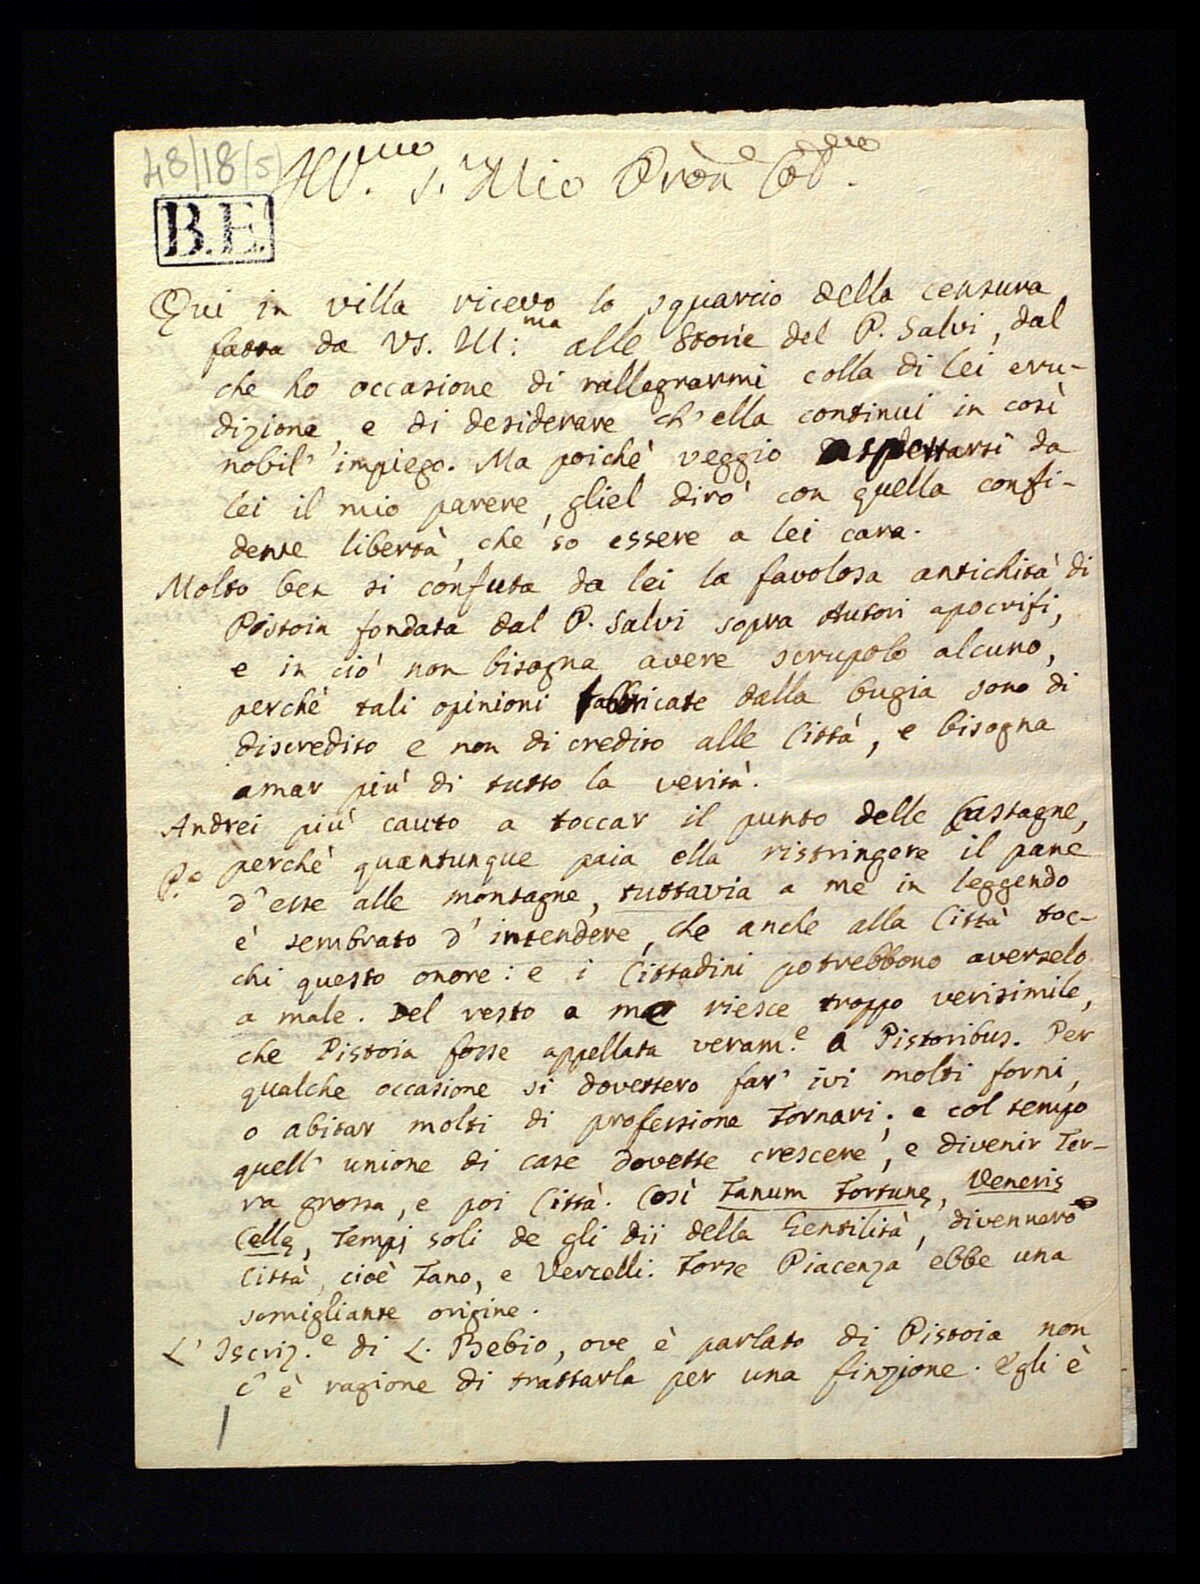 48/18(5)
Ill.mo S. Mio Pròn e Col.mo
B.E.
Qui in villa ricevo lo squarcio della censura
fatta da VS. Ill:ma alle Storie del P. Salvi, dal
che ho occasione di rallegrarmi colla di lei eru-
dizione, e di desiderare ch'ella continui in così
nobil' impiego. Ma poichè veggio aspettarsi da
lei il mio parere, gliel dirò con quella confi-
dente libertà, che so essere a lei cara.
Molto ben si confuta da lei la favolosa antichità di
Pistoia fondata dal P. Salvi sopra Autori apocrifi,
e in ciò non bisogna avere scrupolo alcuno,
perchè tali opinioni fabbricate dalla bugia sono di
discredito e non di credito alle Città, e bisogna
amar più di tutto la verità.
Andrei più cauto a toccar il punto delle Castagne,
perchè quantunque paia ella ristringere il pane
P.e
d'esse alle montagne, tuttavia a me in leggendo
è sembrato d'intendere, che anche alla Città toc-
chi questo onore: e i Cittadini potrebbono averselo
a male. Del resto a me riesce troppo verisimile,
che Pistoia fosse appellata veram.e a Pistoribus. Per
qualche occasione si dovettero far' ivi molti forni,
o abitar molti di professione Fornari; e col tempo
quell' unione di case dovette crescere, e divenir Ter-
ra grossa, e poi Città. Così Fanum Fortunę, Veneris
Cellę, Tempj soli de gli dii della Gentilità, divennero
Città, cioè Fano, e Vercelli. Forse Piacenza ebbe una
somigliante origine.
L' Iscriz.e di L. Bebio, ove è parlato di Pistoia non
c' è ragione di trattarla per una finzione. Egli è